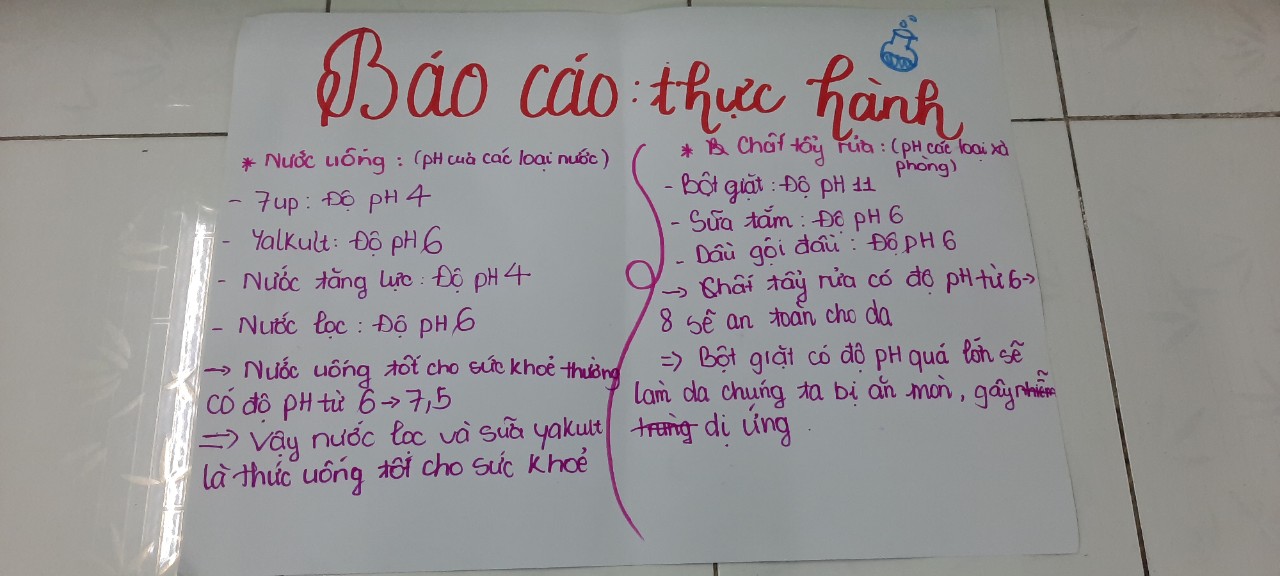 Báo cáo: thực hành
* Nước uống: (pH của các loại nước)
- 7up: Độ pH 4
- Yalkult: Độ pH 6
- Nước tăng lực: Độ pH 4
- Nước lọc: Độ pH 6
→ Nước uống tốt cho sức khoẻ thường
có độ pH từ 6→7,5
=> Vậy nước lọc và sữa yakult
là thức uống tốt cho sức khoẻ
* Chất tẩy rửa: (pH các loại xà
phòng)
- Bột giặt: Độ pH 11
- Sữa tắm: Độ pH 6
- Dầu gội đầu: Độ pH 6
→ Chất tẩy rửa có độ pH từ 6→
8 sẽ an toàn cho da
=> Bột giặt có độ pH quá lớn sẽ
làm da chúng ta bị ăn mòn, gây nhiễm
trùng dị ứng.